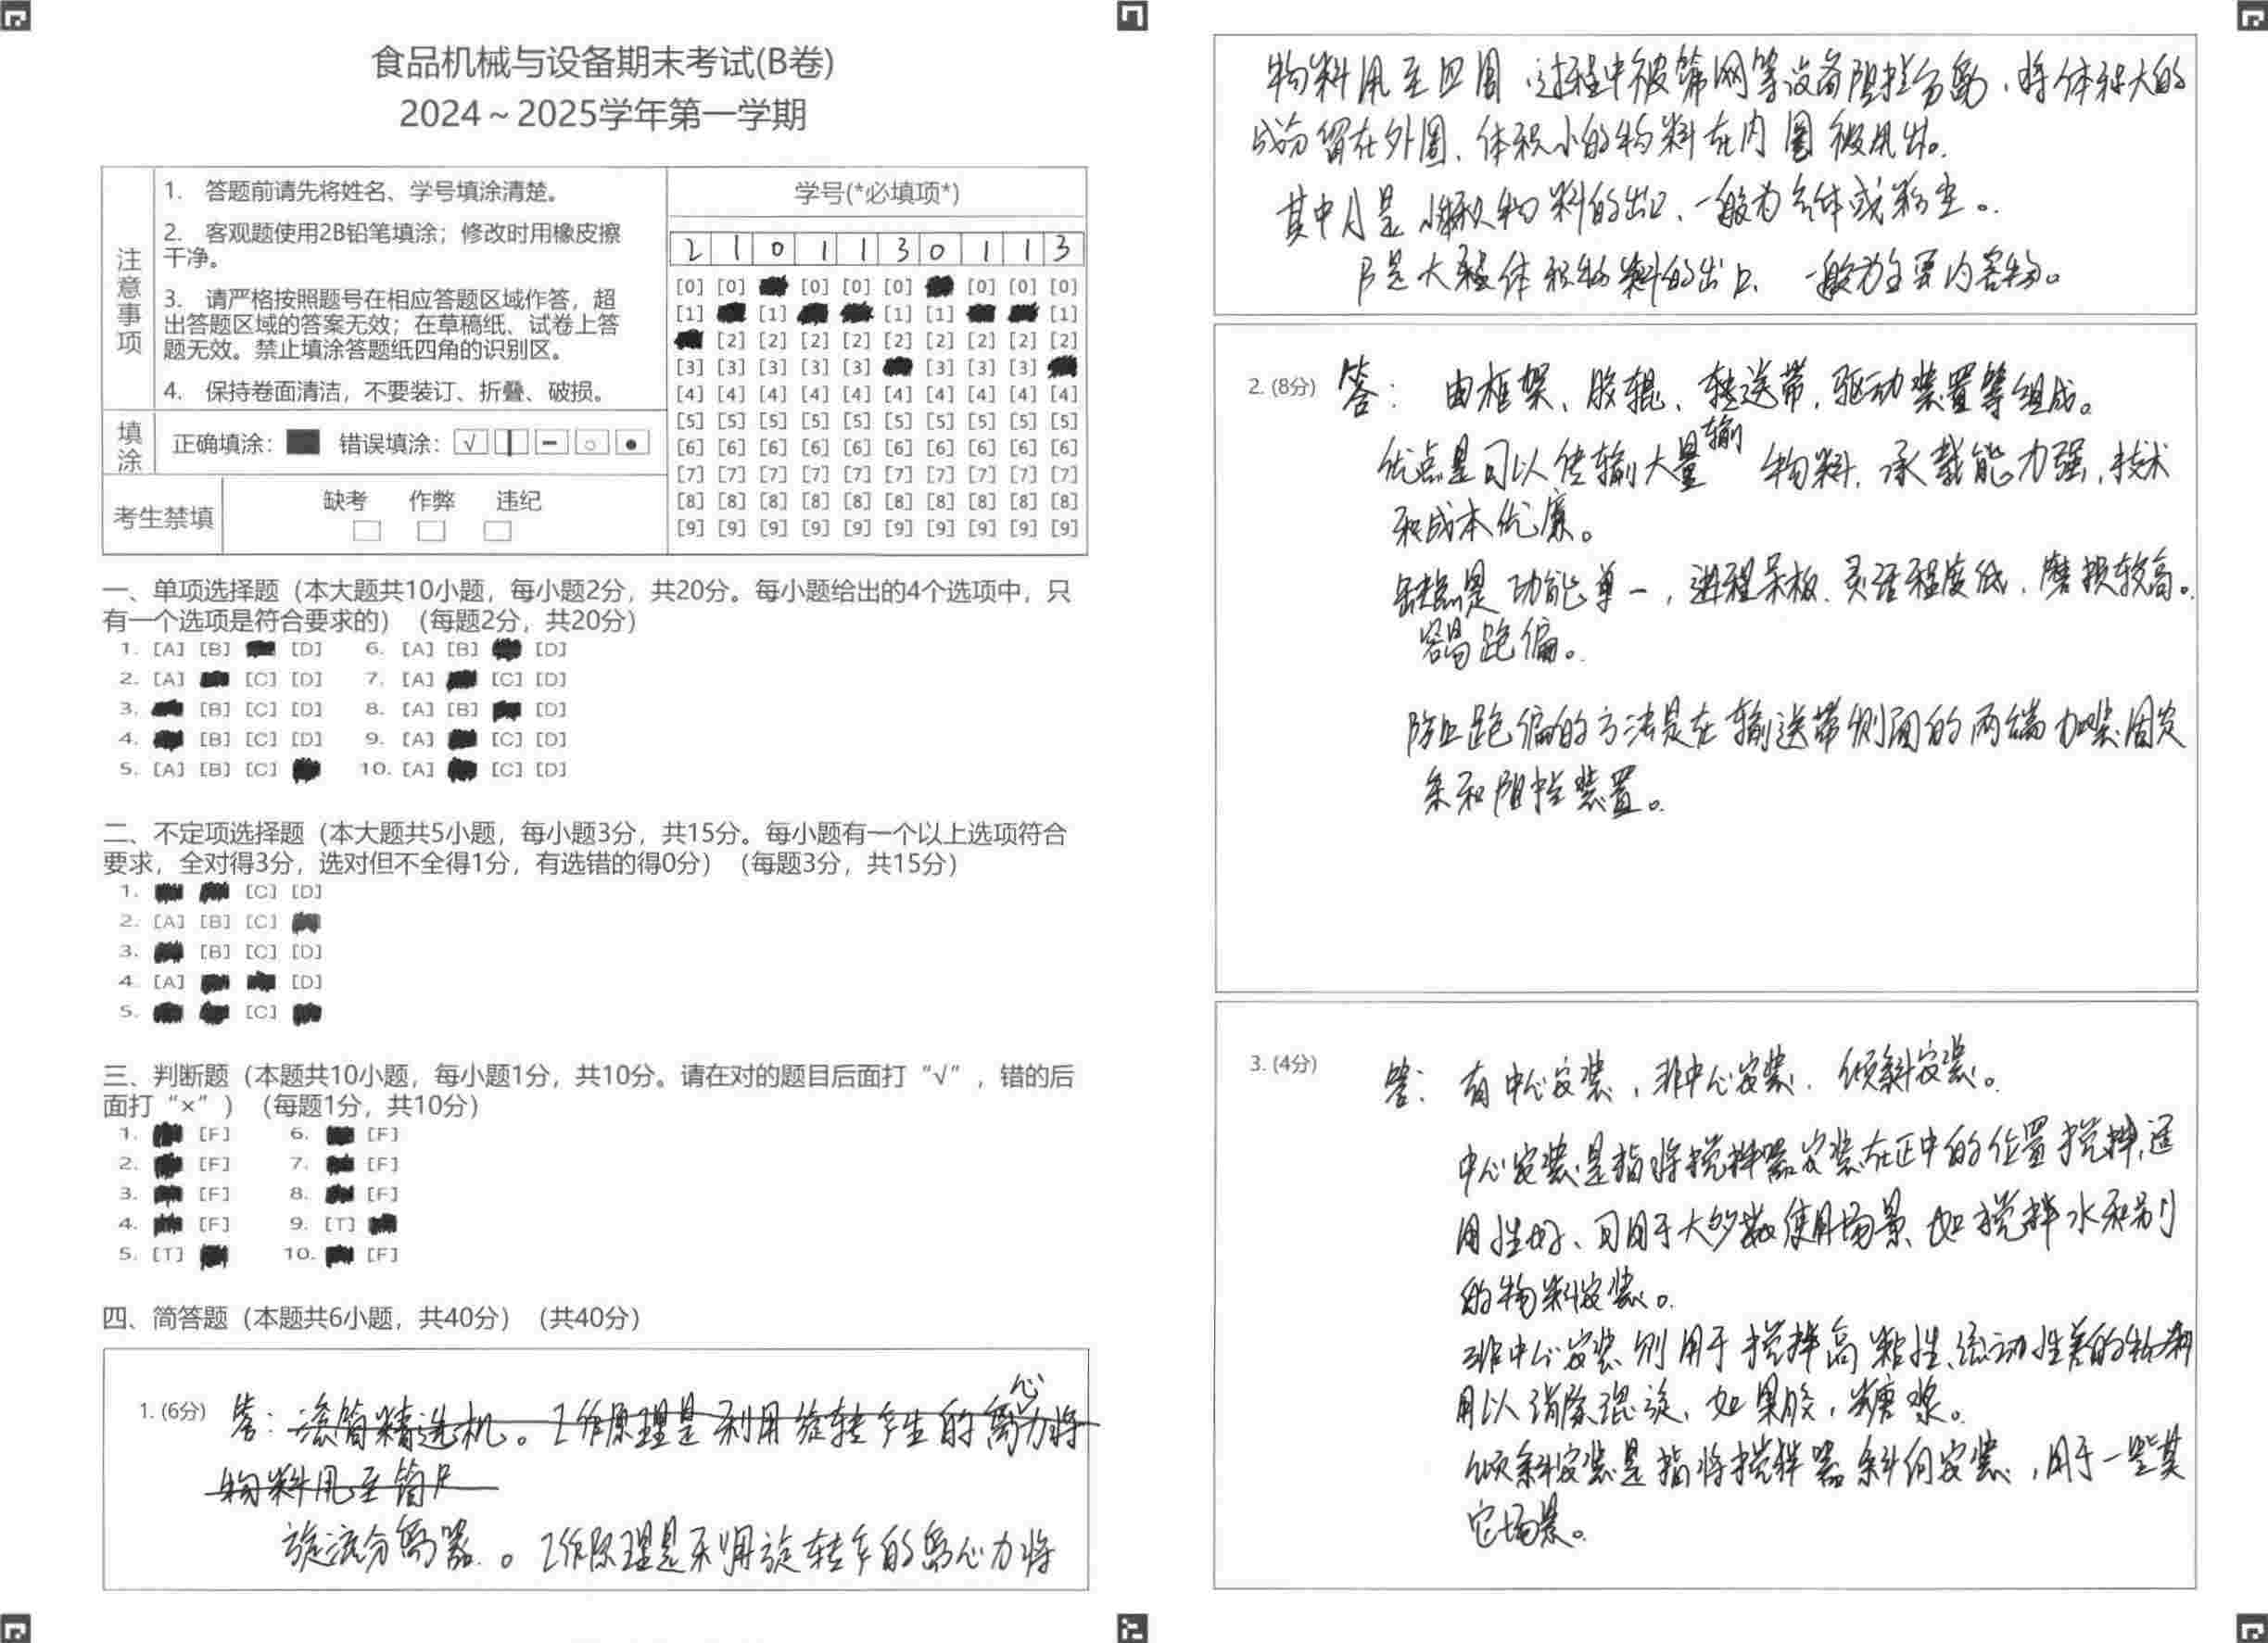 食品机械与设备期末考试(B卷)
2024～2025学年第一学期
注意事项
1. 答题前请先将姓名、学号填涂清楚。
2. 客观题使用2B铅笔填涂；修改时用橡皮擦
干净。
3. 请严格按照题号在相应答题区域作答，超
出答题区域的答案无效；在草稿纸、试卷上答
题无效。禁止填涂答题纸四角的识别区。
4. 保持卷面清洁，不要装订、折叠、破损。
填涂
正确填涂： 错误填涂： √
考生禁填
缺考 作弊 违纪
学号(*必填项*)
2 1 0 1 1 3 0 1 1 3
[0] [0] [0] [0] [0] [0] [0] [0]
[1] [1] [1] [1] [1]
[2] [2] [2] [2] [2] [2] [2] [2] [2]
[3] [3] [3] [3] [3] [3] [3] [3]
[4] [4] [4] [4] [4] [4] [4] [4] [4] [4]
[5] [5] [5] [5] [5] [5] [5] [5] [5] [5]
[6] [6] [6] [6] [6] [6] [6] [6] [6] [6]
[7] [7] [7] [7] [7] [7] [7] [7] [7] [7]
[8] [8] [8] [8] [8] [8] [8] [8] [8] [8]
[9] [9] [9] [9] [9] [9] [9] [9] [9] [9]
一、单项选择题（本大题共10小题，每小题2分，共20分。每小题给出的4个选项中，只
有一个选项是符合要求的）（每题2分，共20分）
1. [A] [B] [D] 6. [A] [B] [D]
2. [A] [C] [D] 7. [A] [C] [D]
3. [B] [C] [D] 8. [A] [B] [D]
4. [B] [C] [D] 9. [A] [C] [D]
5. [A] [B] [C] 10. [A] [C] [D]
二、不定项选择题（本大题共5小题，每小题3分，共15分。每小题有一个以上选项符合
要求，全对得3分，选对但不全得1分，有选错的得0分）（每题3分，共15分）
1. [C] [D]
2. [A] [B] [C]
3. [B] [C] [D]
4. [A] [D]
5. [C]
三、判断题（本题共10小题，每小题1分，共10分。请在对的题目后面打“√”，错的后
面打“×”）（每题1分，共10分）
1. [F] 6. [F]
2. [F] 7. [F]
3. [F] 8. [F]
4. [F] 9. [T]
5. [T] 10. [F]
四、简答题（本题共6小题，共40分）（共40分）
1. (6分) 答：滚筒精选机。工作原理是利用旋转产生的离心力将
物料甩至筒
旋流分离器。工作原理是利用旋转产的离心力将
物料甩至四周，过程中被筛网等设备阻挡分离，将体积大的
成分留在外围、体积小的物料在内圈被甩出。
其中A是小颗粒物料的出口、一般为气体或粉尘。
B是大体积物料的出口、一般为主要内容物。
2. (8分) 答：由框架、胶辊、输送带，驱动装置等组成。
优点是可以传输大量物料，承载能力强，技术
和成本优廉。
缺点是功能单一，进程呆板、灵活程度低，磨损较高。
容易跑偏。
防止跑偏的方法是在输送带侧面的两端加装固定
条和阻挡装置。
3. (4分) 答：有中心安装，非中心安装、倾斜安装。
中心安装是指将搅拌器安装在正中的位置搅拌，适
用性好、可用于大多数使用场景、如搅拌水和别
的物料安装。
非中心安装则用于搅拌高粘性、流动性差的物料
用以消除混旋、如果胶，糖浆。
倾斜安装是指将搅拌器斜向安装，用于一些其
它场景。